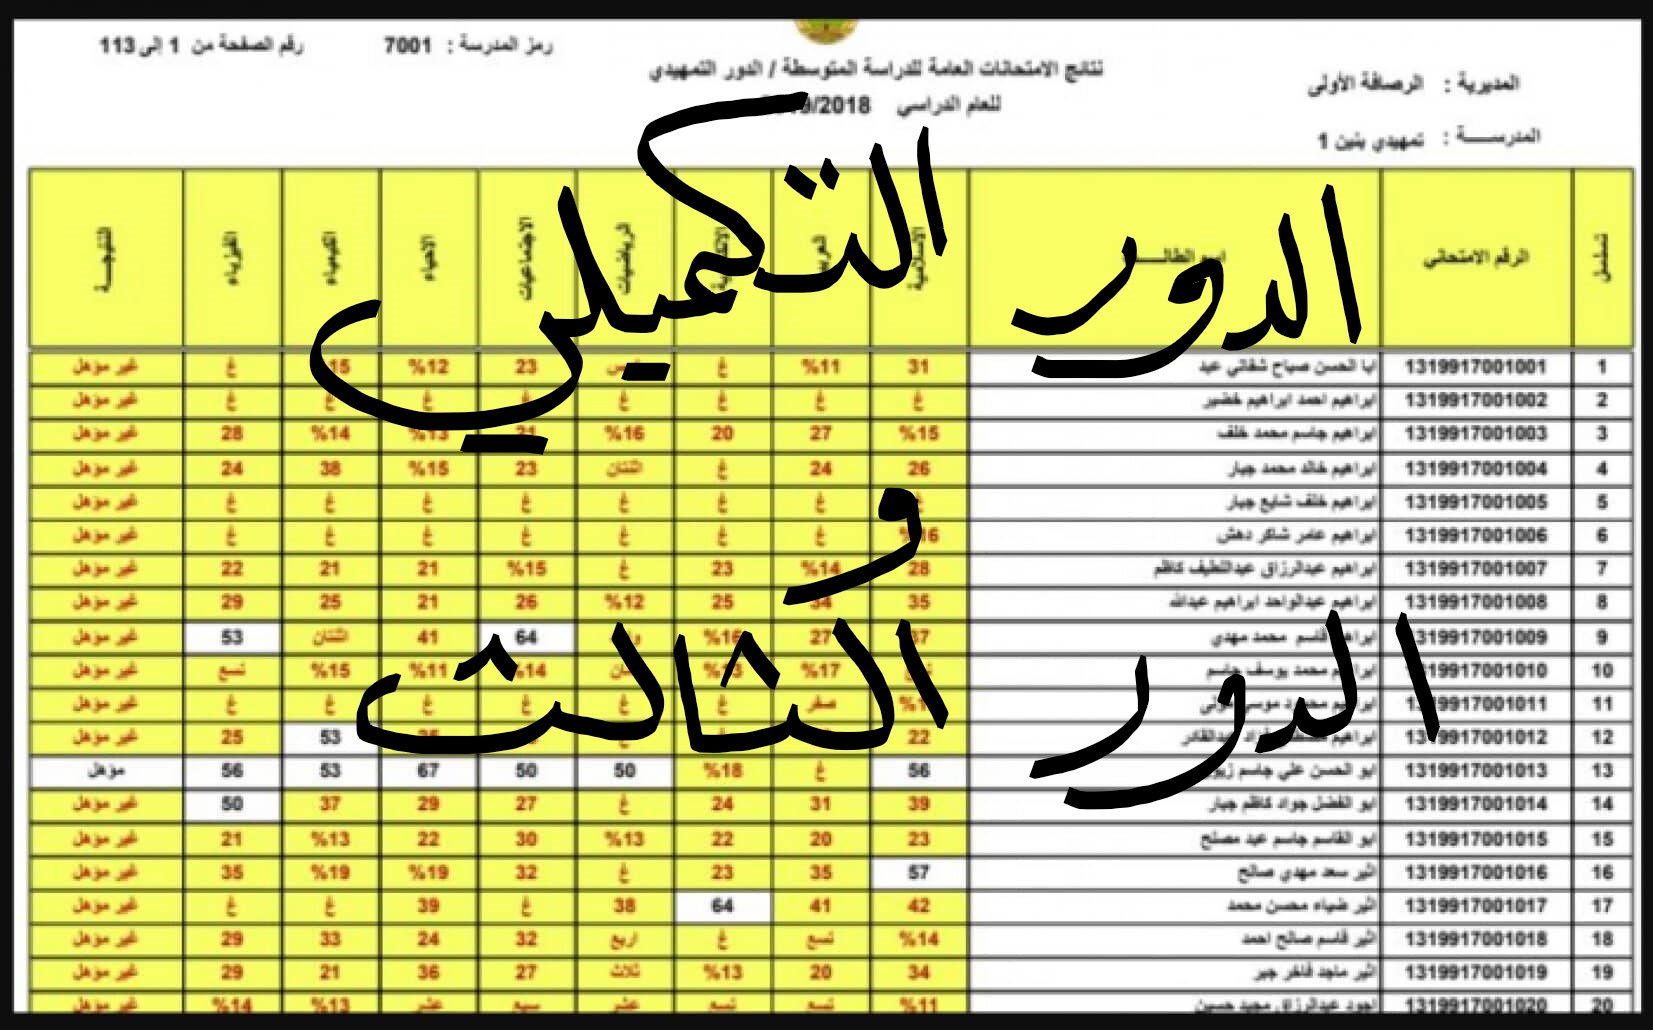 رقم الصفحة من 1 إلى 113
رمز المدرسة : 7001
نتائج الامتحانات العامة للدراسة المتوسطة / الدور التمهيدي
المديرية : الرصافة الأولى
للعام الدراسي /2018
المدرســـة : تمهيدي بنين 1
تسلسل الرقم الامتحاني الاسلامية الرياضيات الاجتماعيات الاحياء الكيمياء الفيزياء النتيجـــة
الدور التكميلي
1 1319917001001 ابا الحسن صباح شفاتي عبد 31 %11 غ 23 %12 15 غ غير مؤهل
2 1319917001002 ابراهيم احمد ابراهيم خضير غ غ غ غ غ غ غ غ غير مؤهل
3 1319917001003 ابراهيم جاسم محمد خلف %15 27 20 %16 21 %13 %14 28 غير مؤهل
4 1319917001004 ابراهيم خالد محمد جبار 26 24 غ اثنتان 23 %15 38 24 غير مؤهل
5 1319917001005 ابراهيم خلف شايع جبار غ غ غ غ غ غ غ غ غير مؤهل
و
6 1319917001006 ابراهيم عامر شاكر دهش %16 غ غ غ غ غ غ غ غير مؤهل
7 1319917001007 ابراهيم عبدالرزاق عبداللطيف كاظم 28 %14 23 غ %15 21 21 22 غير مؤهل
8 1319917001008 ابراهيم عبدالواحد ابراهيم عبدالله 35 34 25 %12 26 21 25 29 غير مؤهل
9 1319917001009 قاسم محمد مهدي 37 27 %16 64 41 اثنتان 53 غير مؤهل
الدور الثالث
10 1319917001010 محمد يوسف جاسم %17 %13 %14 %11 %15 تسع غير مؤهل
11 1319917001011 موسى صفر غ غ غ غ غ غ غير مؤهل
12 1319917001012 ابراهيم عبدالقادر 22 53 25 غير مؤهل
13 1319917001013 ابو الحسن علي جاسم 56 غ %18 50 50 67 53 56 مؤهل
14 1319917001014 ابو الفضل جواد كاظم جبار 39 31 24 غ 27 29 37 50 غير مؤهل
15 1319917001015 ابو القاسم جاسم عبد مصلح 23 20 22 %13 30 22 %13 21 غير مؤهل
16 1319917001016 اثير سعد مهدي صالح 57 35 23 غ 32 %19 %19 35 غير مؤهل
17 1319917001017 اثير ضياء محسن محمد 42 41 64 38 غ 39 غ غ غير مؤهل
18 1319917001018 اثير قاسم صالح احمد %14 تسع غ اربع 32 24 33 29 غير مؤهل
19 1319917001019 اثير ماجد فاخر جبر 34 20 %13 ثلاث 27 36 21 29 غير مؤهل
20 1319917001020 اجود عبدالرزاق مجيد حسين %11 تسع تسع عشر سبع عشر %13 %14 غير مؤهل